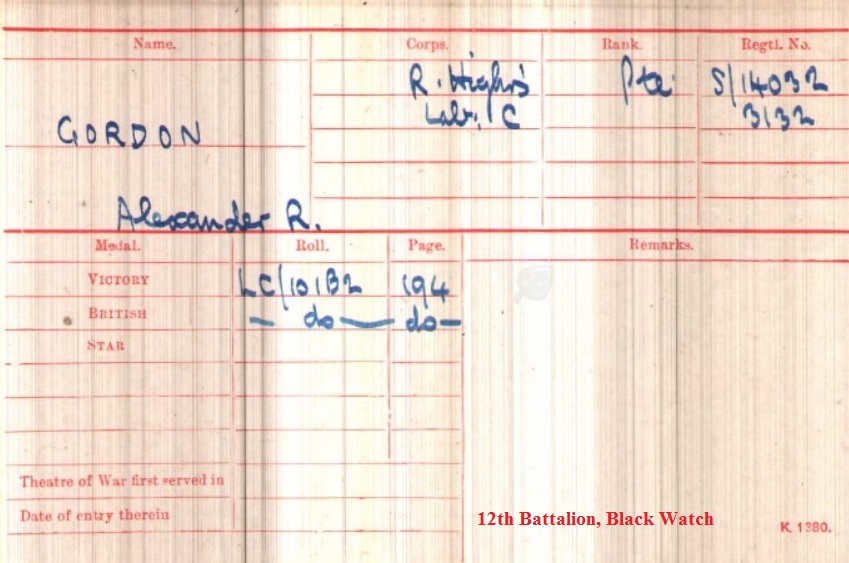 Name. Corps. Rank. Regtl. No.
R. Highrs Pte. S/14032
Lab. C 3132
GORDON
Alexander R.
Medal. Roll. Page. Remarks.
VICTORY LC/101B2 194
BRITISH — do — do —
STAR
Theatre of War first served in
Date of entry therein
12th Battalion, Black Watch
K. 1380.